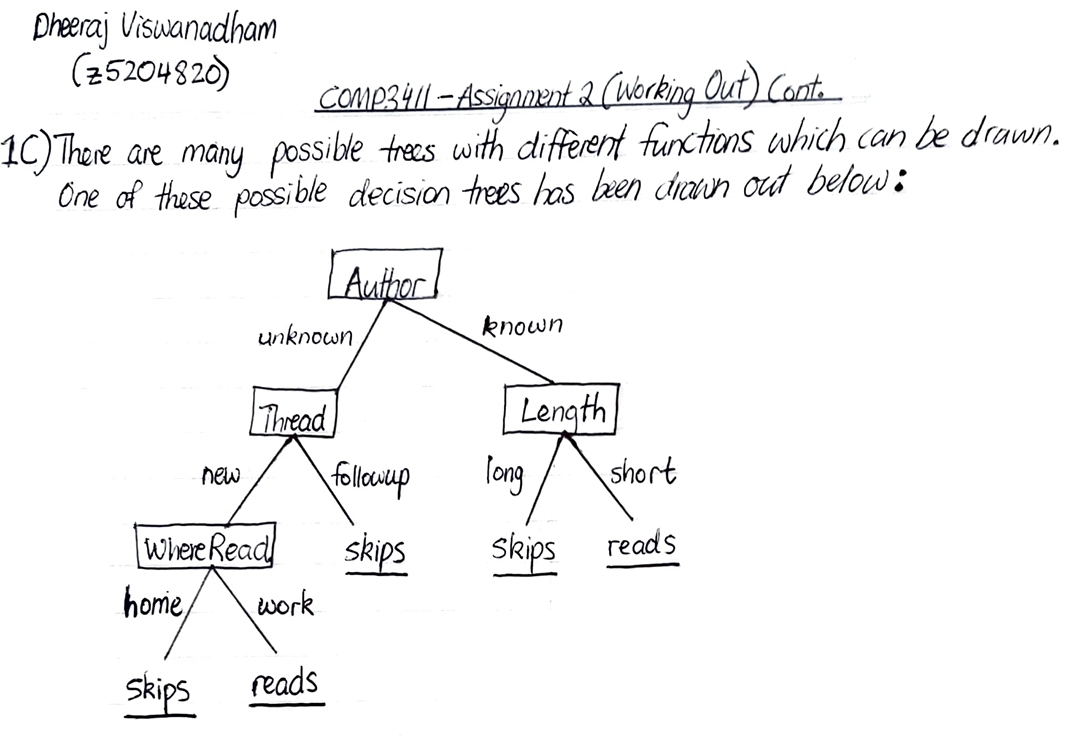 Dheeraj Viswanadham
(z5204820)
COMP3411 - Assignment 2 (Working Out) Cont.
1C) There are many possible trees with different functions which can be drawn.
One of these possible decision trees has been drawn out below:
Author
unknown known
Thread Length
new followup long short
WhereRead skips skips reads
home work
skips reads